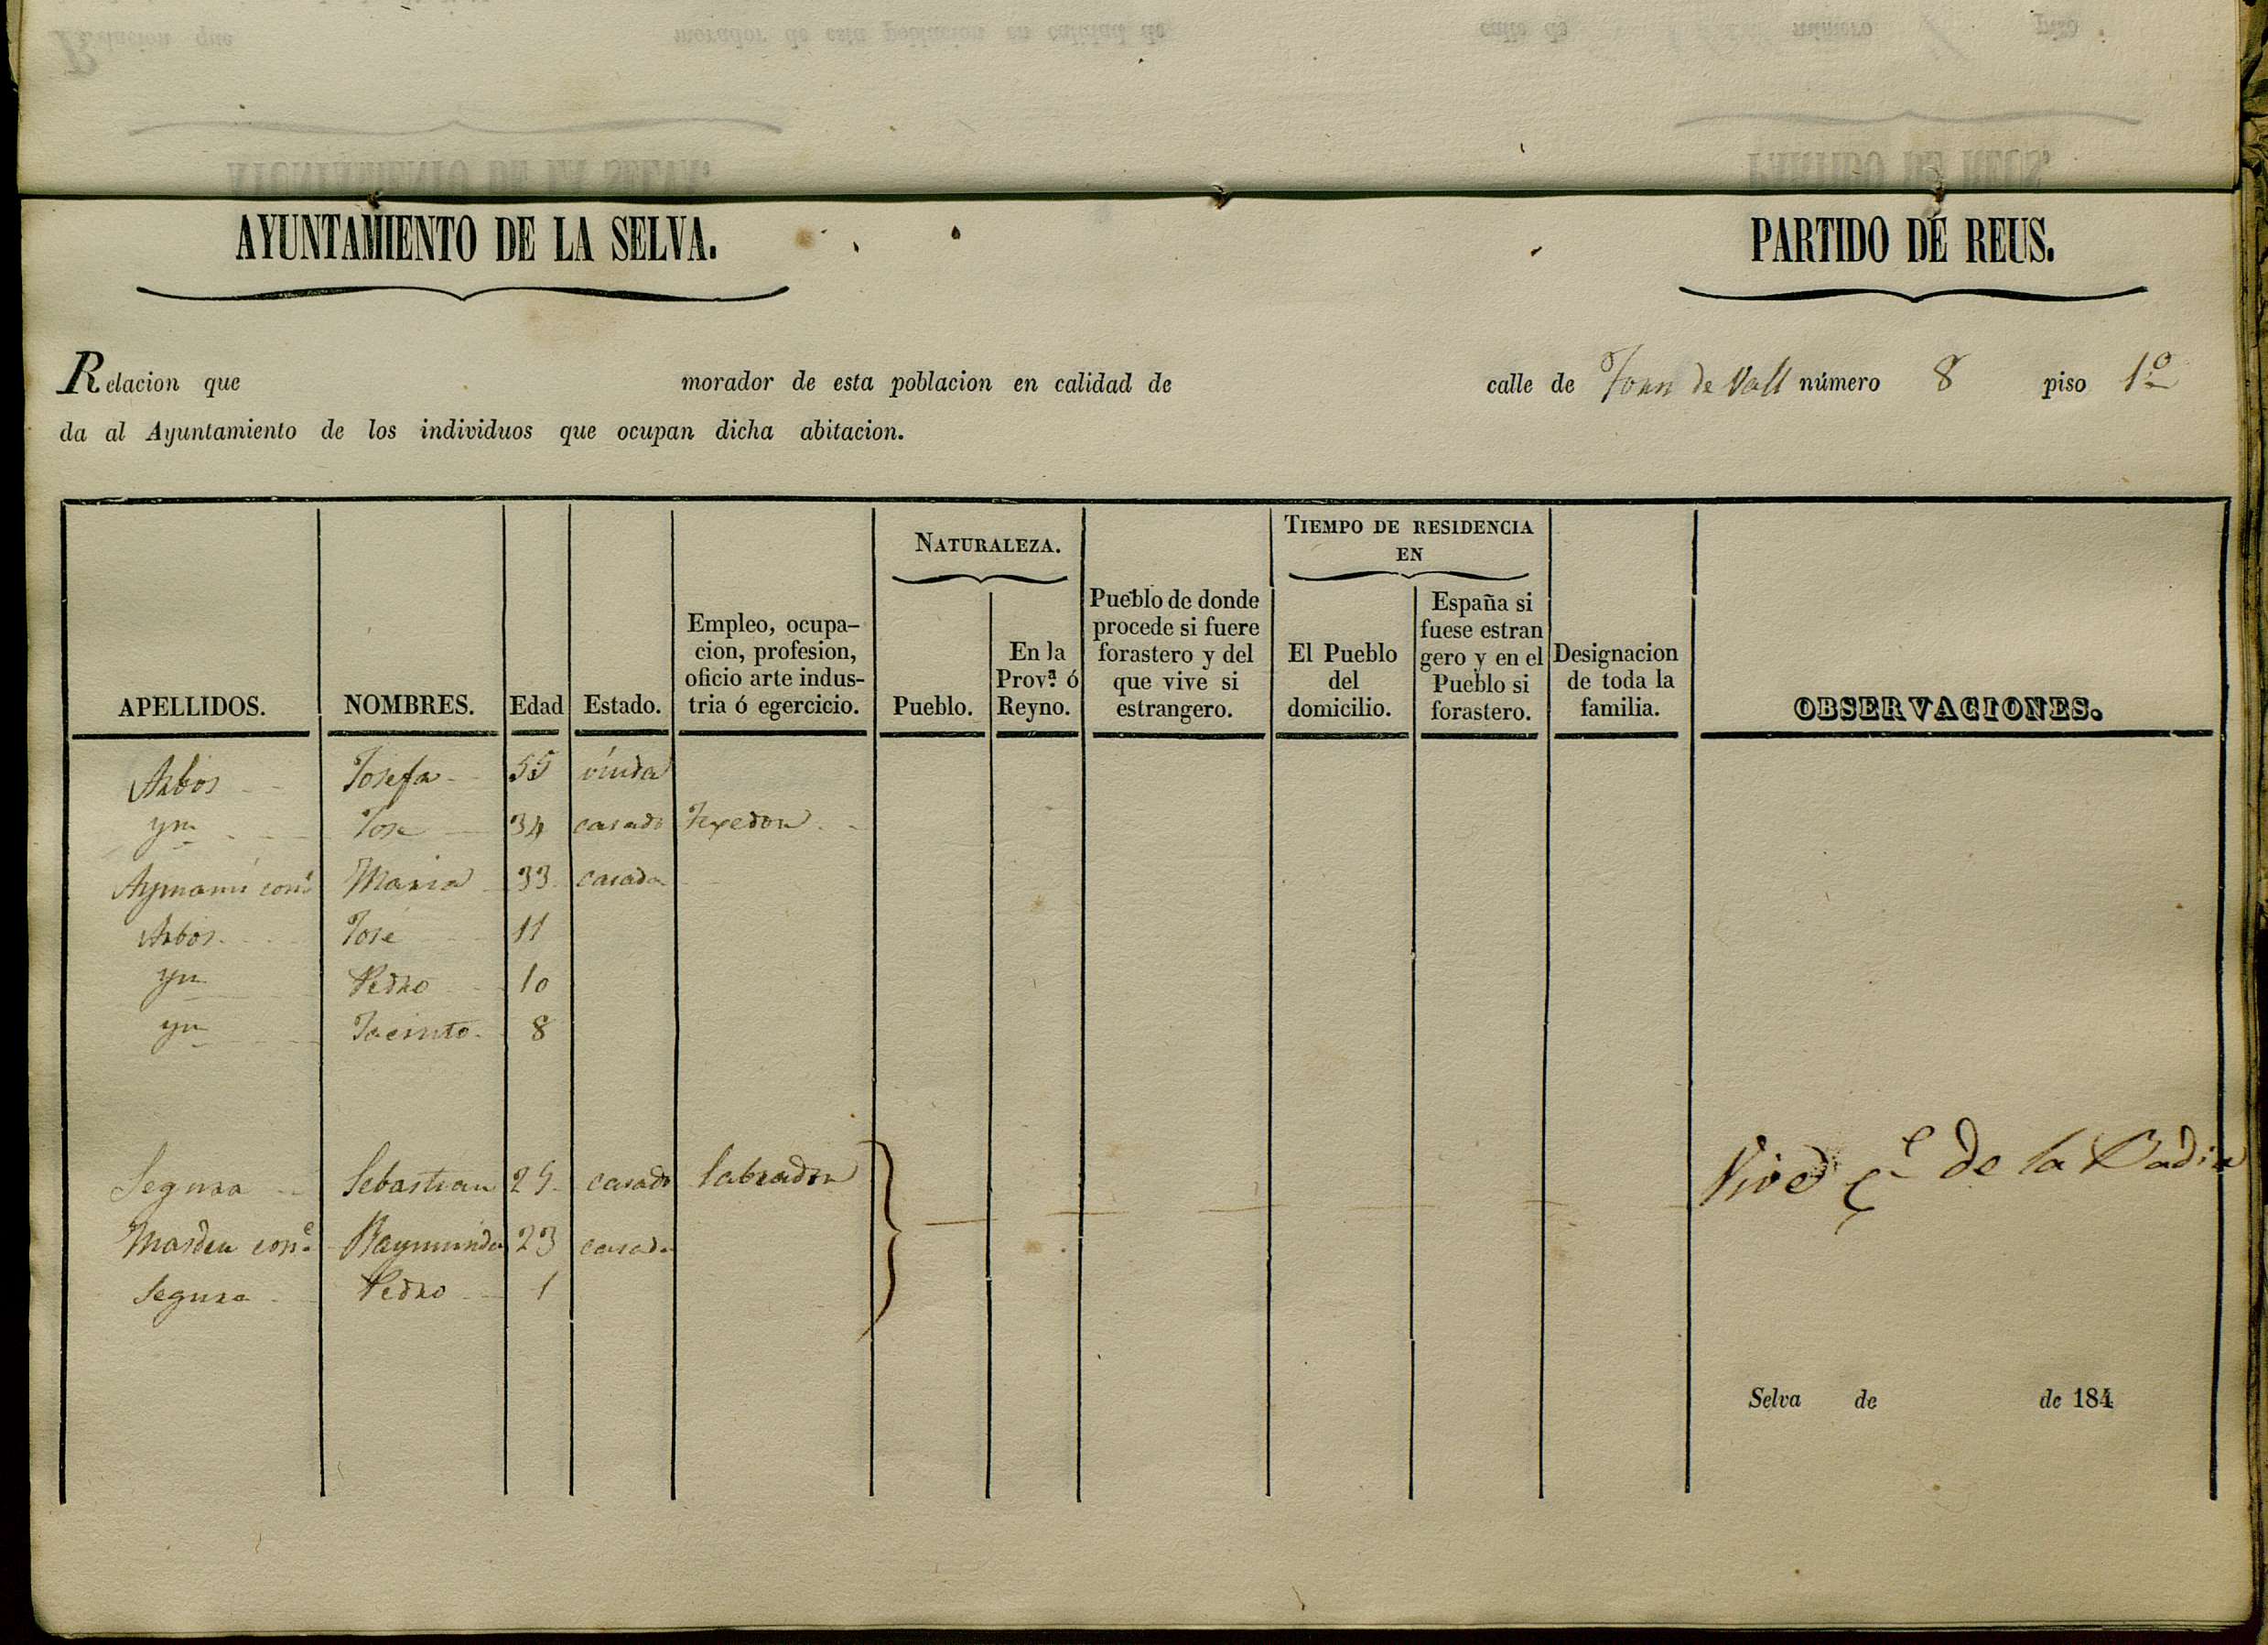 AYUNTAMIENTO DE LA SELVA. PARTIDO DE REUS.
Relacion que morador de esta poblacion en calidad de calle de Forn de Vall número 8 piso 1º
da al Ayuntamiento de los individuos que ocupan dicha abitacion.
NATURALEZA. TIEMPO DE RESIDENCIA EN
APELLIDOS. NOMBRES. Edad Estado. Empleo, ocupa-
cion, profesion,
oficio arte indus-
tria ó egercicio. Pueblo. En la
Provª. ó
Reyno. Pueblo de donde
procede si fuere
forastero y del
que vive si
estrangero. El Pueblo
del
domicilio. España si
fuese estran
gero y en el
Pueblo si
forastero. Designacion
de toda la
familia. OBSERVACIONES.
Arbós Josefa 55 viuda
ym José 34 casado texedor
Aymamí conᵉ Maria 33 casada
Arbós José 11
ym Pedro 10
ym Jacinto 8
Segura Sebastian 25 casado labrador Vive Cᵉ de la Badia
Masdeu consᵉ Raymunda 23 casada
Segura Pedro 1
Selva de de 184